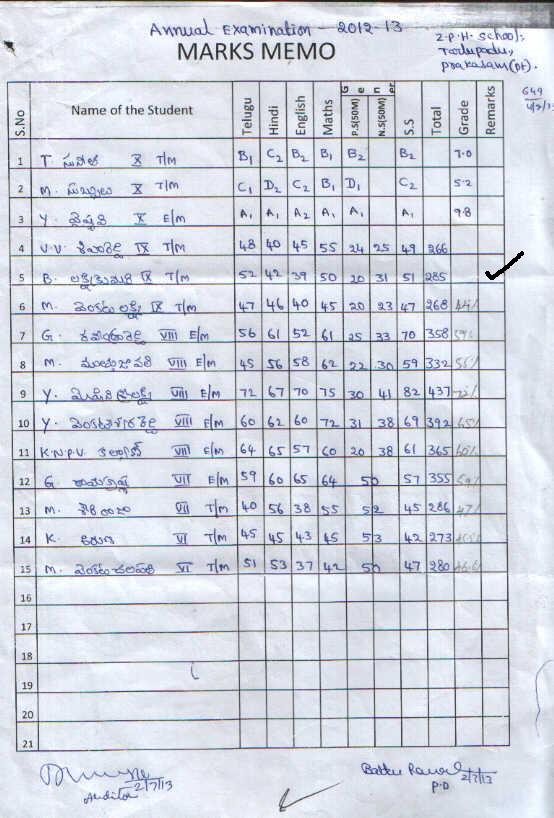 Annual Examination - 2012-13
Z.P.H. School;
MARKS MEMO
Tadupadu,
prakasam(Dt).
649
S.No Name of the Student Telugu Hindi English Maths Gener P.S(50M) N.S(50M) S.S Total Grade Remarks
1 T. సునీత X T/M B1 C2 B2 B1 B2 B2 7.0
2 M. సుబ్బులు X T/M C1 D2 C2 B1 D1 C2 5.2
3 Y. వైష్ణవి X E/M A1 A1 A2 A1 A1 A1 9.8
4 V.V. IX T/M 48 40 45 55 24 25 49 266
5 B. లక్ష్మీకుమారి IX T/M 52 42 39 50 20 31 51 285
6 M. వెంకట లక్ష్మి IX T/M 47 46 40 45 20 23 47 268
7 G. VIII E/M 56 61 52 61 25 33 70 358
8 M. VIII E/M 45 56 58 62 22 30 59 332
9 Y. VIII E/M 72 67 70 75 30 41 82 437
10 Y. VIII E/M 60 62 60 72 31 38 69 392
11 K.N.P.V. కళ్యాణ్ VIII E/M 64 65 57 60 20 38 61 365
12 G. రామకృష్ణ VII E/M 59 60 65 64 50 57 355
13 M. VII T/M 40 56 38 55 52 45 286
14 K. కిరణ VI T/M 45 45 43 45 53 42 273
15 M. వెంకట చలపతి VI T/M 51 53 37 42 50 47 280
16
17
18
19
20
21
2/7/13
Auditor
2/7/13
P.D